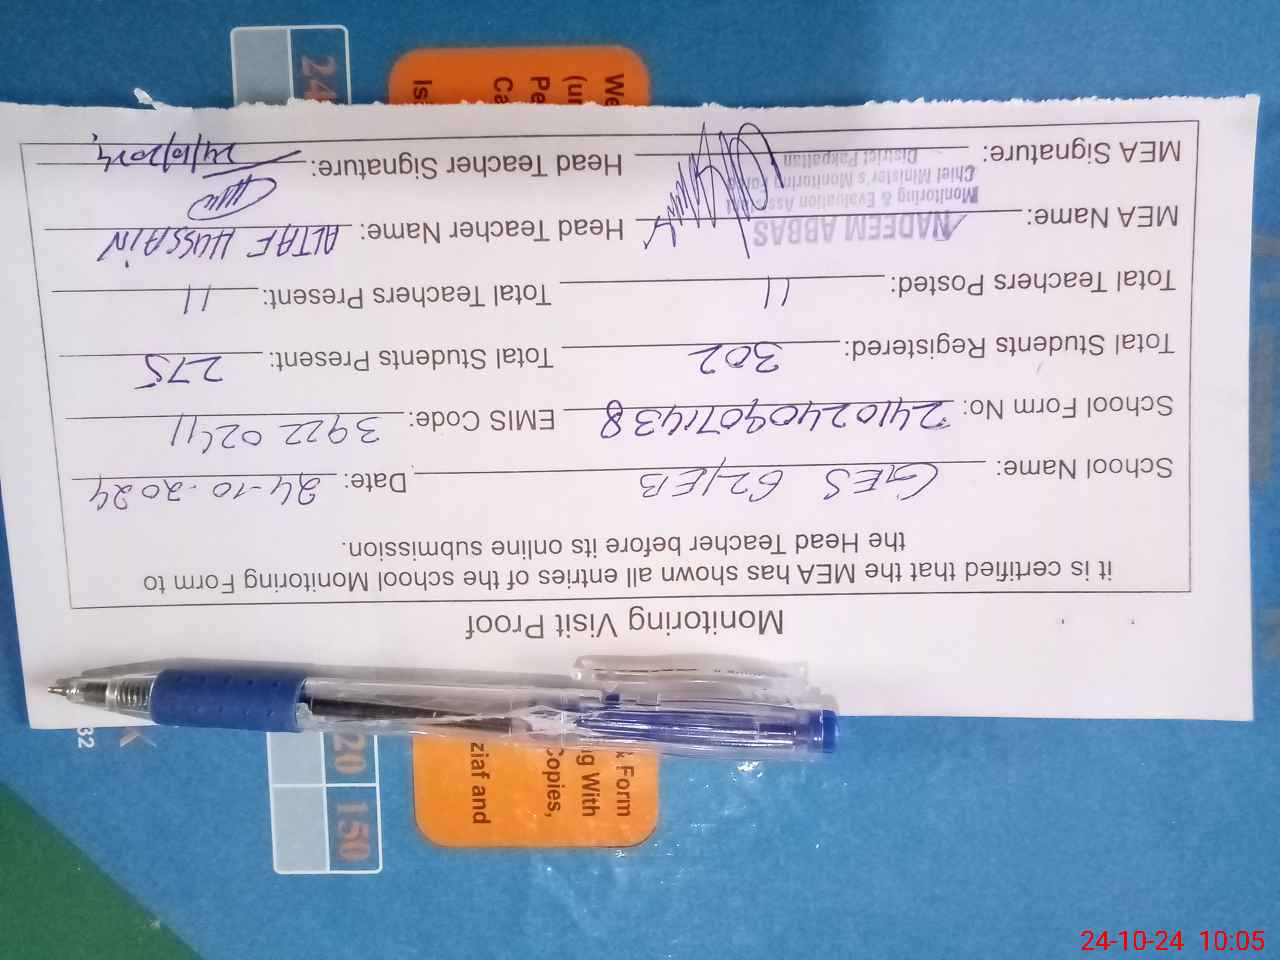 Monitoring Visit Proof
it is certified that the MEA has shown all entries of the school Monitoring Form to
the Head Teacher before its online submission.
School Name: GES 62/EB Date: 24-10-2024
School Form No: 24102409071438 EMIS Code: 39220241
Total Students Registered: 302 Total Students Present: 275
Total Teachers Posted: 11 Total Teachers Present: 11
MEA Name: NADEEM ABBAS Head Teacher Name: ALTAF HUSSAIN
Monitoring & Evaluation Assistant
Chief Minister's Monitoring Force
District Pakpattan
MEA Signature: Head Teacher Signature: 24/10/2024
Form
g With
Copies,
ziaf and
20 150
32
24-10-24 10:05